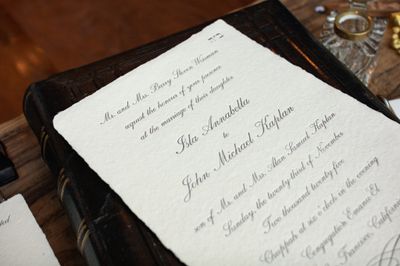 Mr. and Mrs. Barry Steven Waxman
request the honour of your presence
at the marriage of their daughter
Isla Annabella
to
John Michael Kaplan
son of Mr. and Mrs. Alan Samuel Kaplan
Sunday, the twenty third of November
Two thousand twenty five
Chuppah at six o'clock in the evening
Congregation Emanu El
Francisco, California